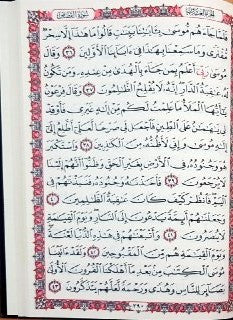 الجزء العشرون سورة القصص
فَلَمَّا جَآءَهُم مُّوسَىٰ بِـَٔايَٰتِنَا بَيِّنَٰتٖ قَالُواْ مَا هَٰذَآ إِلَّا سِحۡرٞ
مُّفۡتَرٗى وَمَا سَمِعۡنَا بِهَٰذَا فِيٓ ءَابَآئِنَا ٱلۡأَوَّلِينَ ٣٦ وَقَالَ
مُوسَىٰ رَبِّيٓ أَعۡلَمُ بِمَن جَآءَ بِٱلۡهُدَىٰ مِنۡ عِندِهِۦ وَمَن تَكُونُ
لَهُۥ عَٰقِبَةُ ٱلدَّارِۚ إِنَّهُۥ لَا يُفۡلِحُ ٱلظَّٰلِمُونَ ٣٧ وَقَالَ فِرۡعَوۡنُ
يَٰٓأَيُّهَا ٱلۡمَلَأُ مَا عَلِمۡتُ لَكُم مِّنۡ إِلَٰهٍ غَيۡرِي فَأَوۡقِدۡ
لِي يَٰهَٰمَٰنُ عَلَى ٱلطِّينِ فَٱجۡعَل لِّي صَرۡحٗا لَّعَلِّيٓ أَطَّلِعُ إِلَىٰٓ
إِلَٰهِ مُوسَىٰ وَإِنِّي لَأَظُنُّهُۥ مِنَ ٱلۡكَٰذِبِينَ ٣٨ وَٱسۡتَكۡبَرَ
هُوَ وَجُنُودُهُۥ فِي ٱلۡأَرۡضِ بِغَيۡرِ ٱلۡحَقِّ وَظَنُّوٓاْ أَنَّهُمۡ إِلَيۡنَا
لَا يُرۡجَعُونَ ٣٩ فَأَخَذۡنَٰهُ وَجُنُودَهُۥ فَنَبَذۡنَٰهُمۡ فِي
ٱلۡيَمِّۖ فَٱنظُرۡ كَيۡفَ كَانَ عَٰقِبَةُ ٱلظَّٰلِمِينَ ٤٠
وَجَعَلۡنَٰهُمۡ أَئِمَّةٗ يَدۡعُونَ إِلَى ٱلنَّارِۖ وَيَوۡمَ ٱلۡقِيَٰمَةِ
لَا يُنصَرُونَ ٤١ وَأَتۡبَعۡنَٰهُمۡ فِي هَٰذِهِ ٱلدُّنۡيَا لَعۡنَةٗۖ
وَيَوۡمَ ٱلۡقِيَٰمَةِ هُم مِّنَ ٱلۡمَقۡبُوحِينَ ٤٢ وَلَقَدۡ ءَاتَيۡنَا
مُوسَى ٱلۡكِتَٰبَ مِنۢ بَعۡدِ مَآ أَهۡلَكۡنَا ٱلۡقُرُونَ ٱلۡأُولَىٰ
بَصَآئِرَ لِلنَّاسِ وَهُدٗى وَرَحۡمَةٗ لَّعَلَّهُمۡ يَتَذَكَّرُونَ ٤٣
٣٩٠